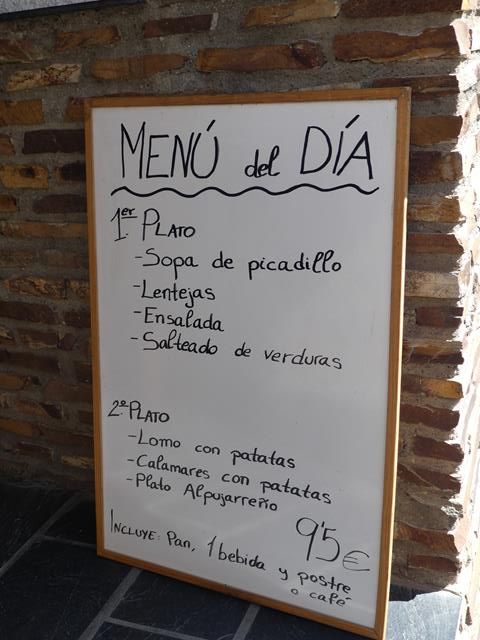 MENÚ del DÍA
1.er PLATO
- Sopa de picadillo
- Lentejas
- Ensalada
- Salteado de verduras
2.º PLATO
- Lomo con patatas
- Calamares con patatas
- Plato Alpujarreño
9'5€
INCLUYE: Pan, 1 bebida y postre
o café